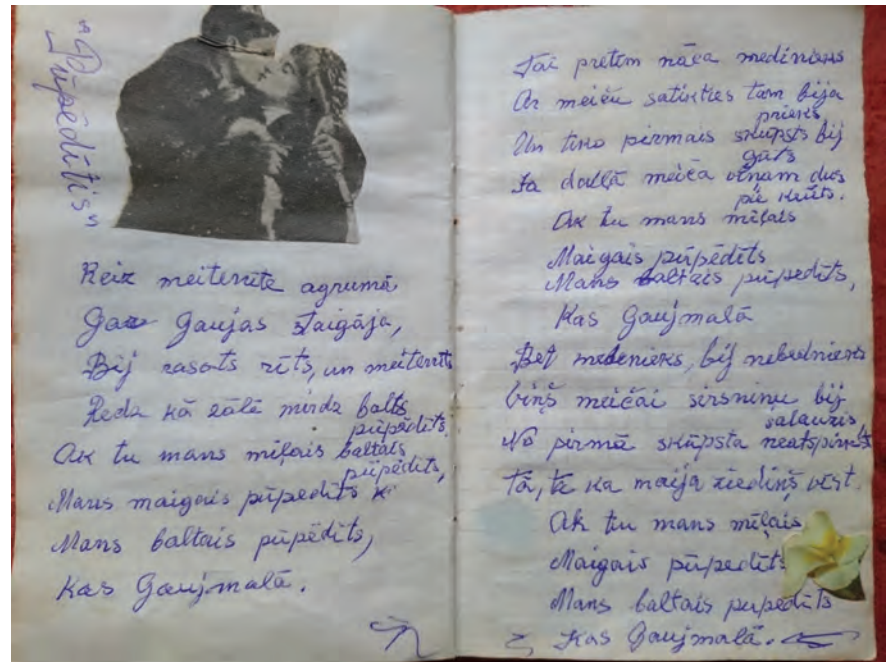 "Pūpēdītis"
Reiz meitenīte agrumā
Gar Gaujas staigāja,
Bij rasots rīts, un meitenīte
Redz kā zālē mirdz balts
pūpēdīts.
Ak tu mans mīļais baltais
pūpēdīts,
Mans maigais pūpedīts
Mans baltais pūpēdīts,
Kas Gaujmalā.
Tai pretim nāca medinieks
Ar meiču satikties tam bija
prieks
Un tiko pirmais skūpsts bij
gūts
Ja daiļā meiča viņam dus
pie krūts.
Ak tu mans mīļais
Maigais pūpēdīts
Mans baltais pūpedīts,
Kas Gaujmalā
Bet medenieks, bij nebednieks
viņš meičai sirsniņu bij
salauzis,
No pirmā skūpsta neatspirgst
tā, te ka maija ziediņš vīst.
Ak tu mans mīļais
Maigais pūpedīts
Mans baltais pupedīts
Kas Gaujmalā.